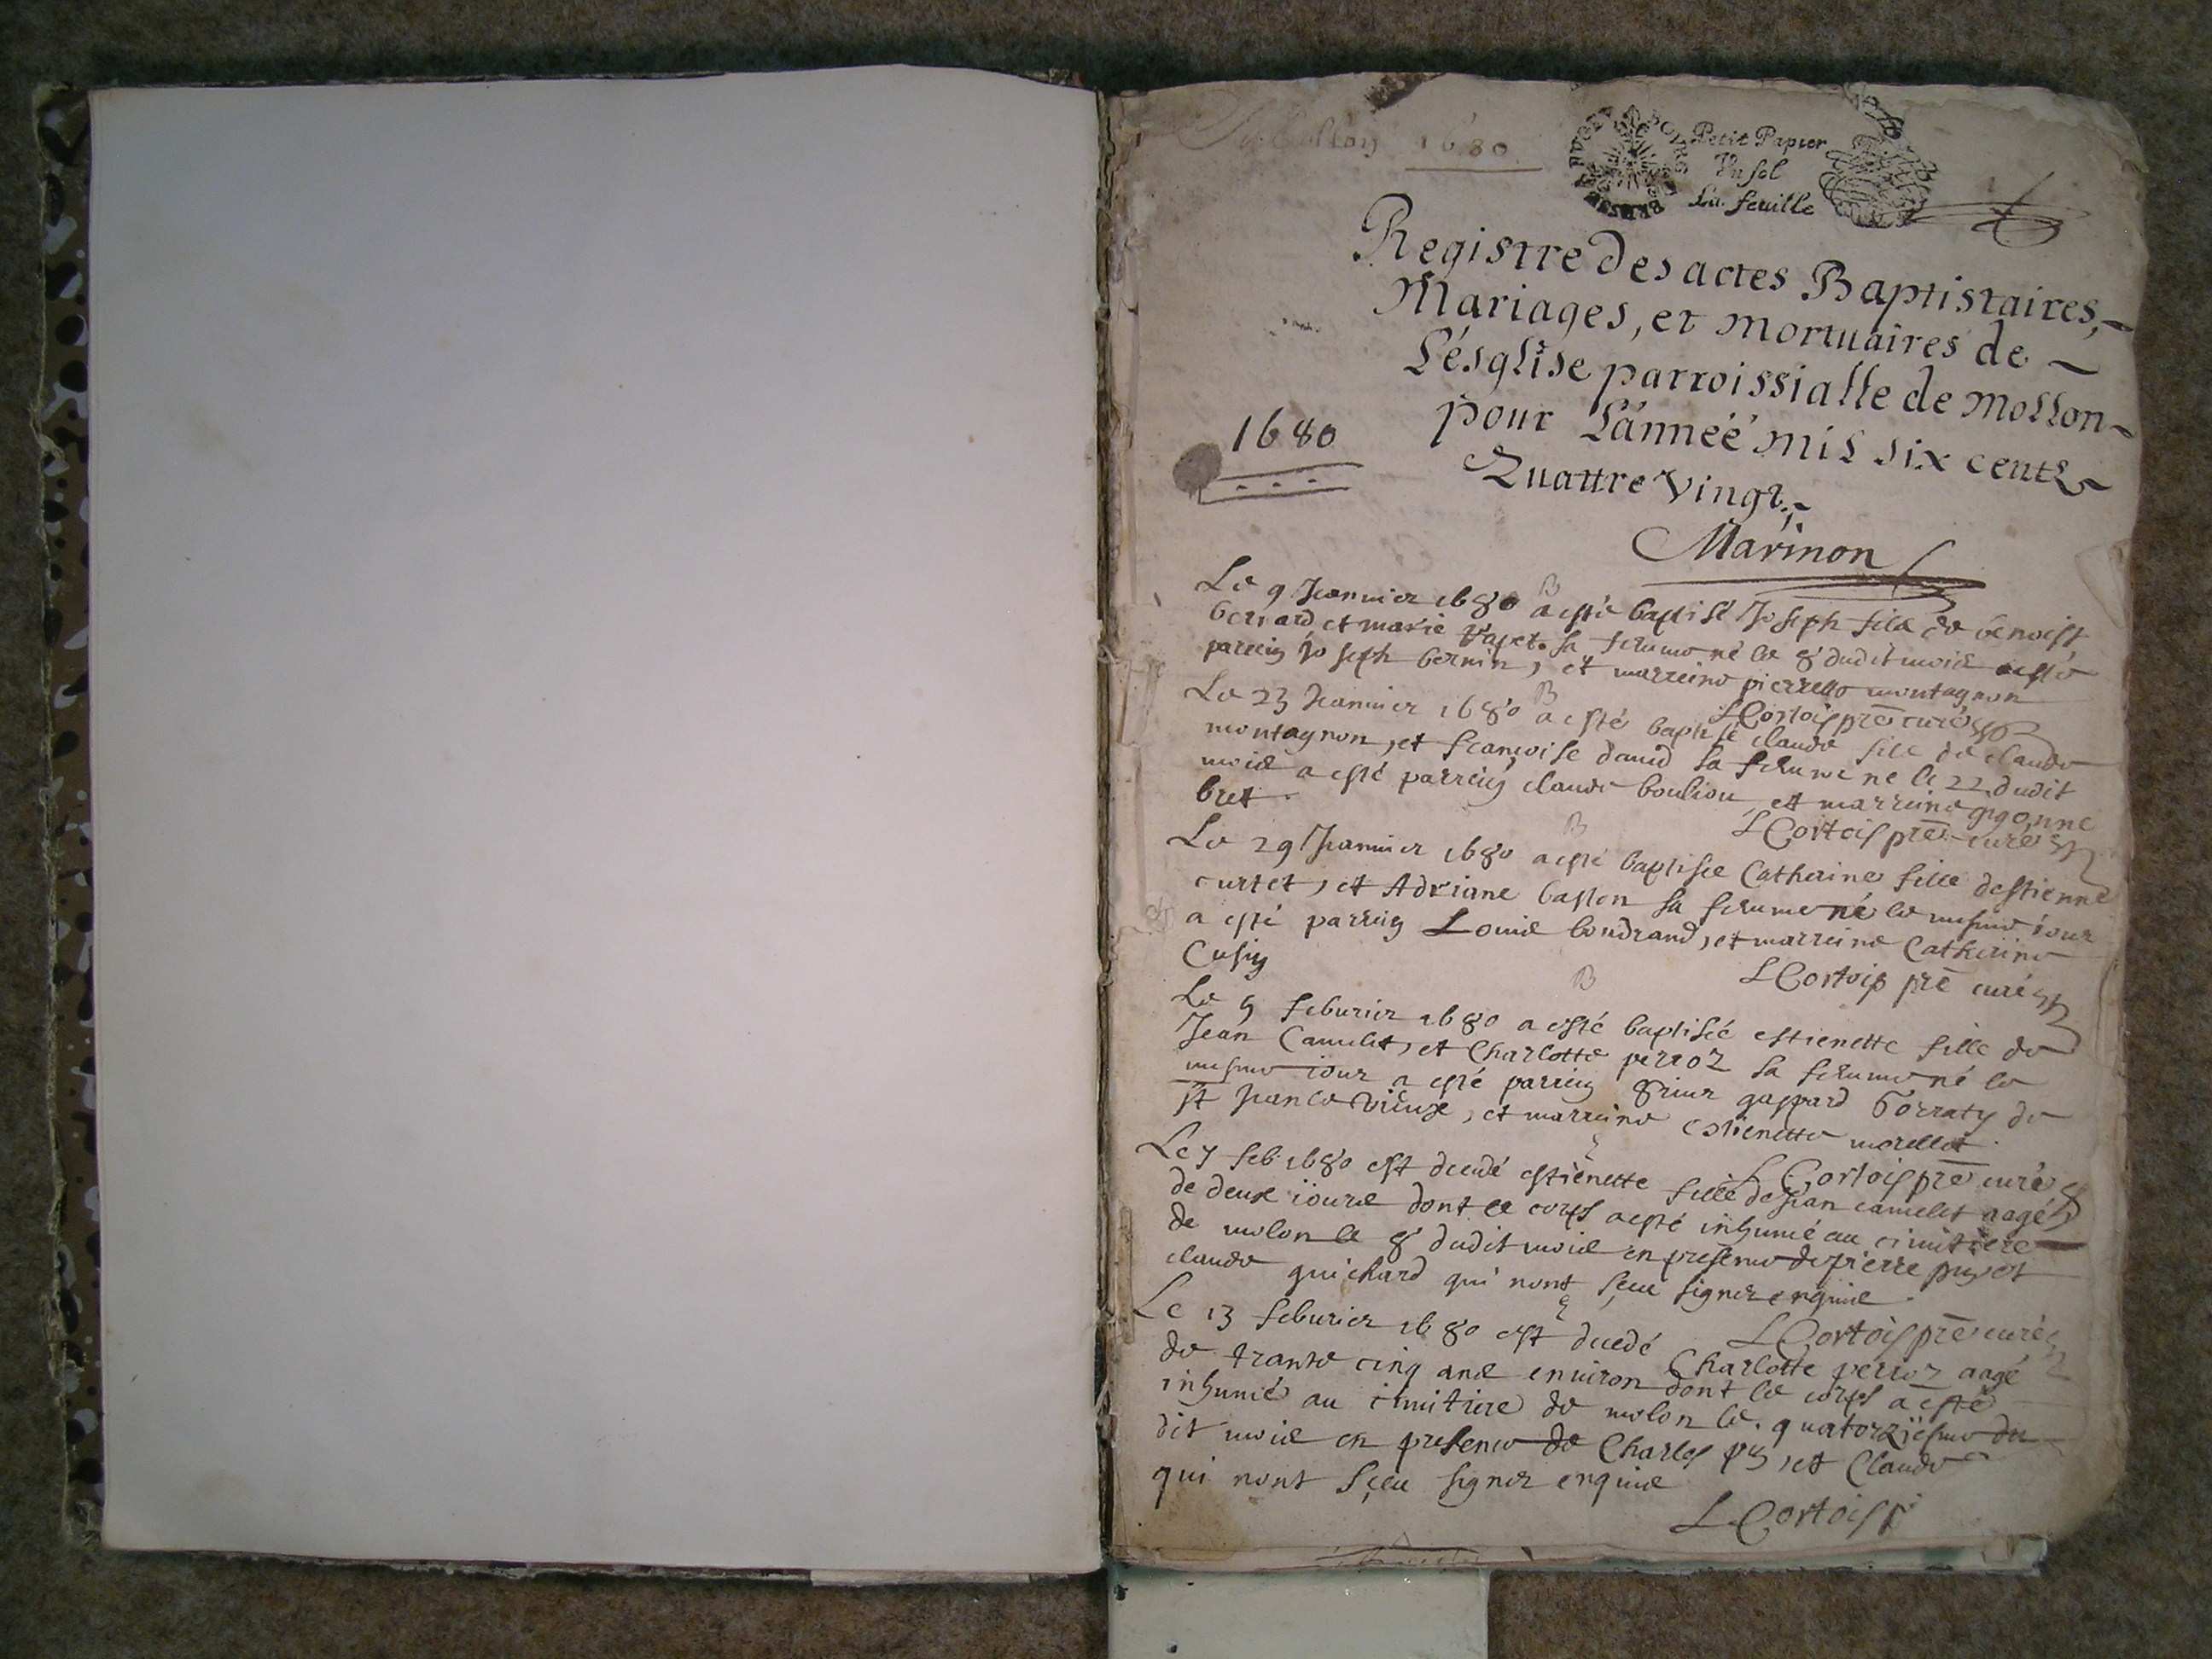 Mollon 1680
BOURG BRESSE BUGEY
Petit Papier
Un sol
La feuille
Registre des actes Baptistaires,
Mariages, et mortuaires de
L'ésglise parroissialle de mollon
pour L'année mil six centz
Quattre Vingt.
1680
Marinon
Le 9 Jeanuier 1680 a esté baptisé Joseph filz de benoist
bernard et marie sa femme né le 8 dudit mois a esté
parrein Joseph bernin, et marreine pierrette montagnon
LCortois pre curé
Le 23 Jeanuier 1680 a esté baptisé claude filz de claude
montagnon, et françoise dauid sa femme né le 22 dudit
mois a esté parrein claude boulion et marreine
bret.
LCortois pre curé
Le 29 Jeanuier 1680 a esté baptisée Catherine fille destienne
curtet, et Adriane baston sa femme né le mesme iour
a esté parrein Louis boudrand, et marreine Catherine
Cusin
LCortois pre curé
Le 5 feburier 1680 a esté baptisée estienette fille de
Jean Camelet, et Charlotte perroz sa femme né le
mesme iour a esté parrein gaspard de
st Jean le vieux, et marreine estienette morellet.
LCortois pre curé
Le 7 feb. 1680 est decedé estienette fille de Jean camelet aagé
de deux iours dont le corps a esté inhumé au cimitiere
de molon le 8 dudit mois en presence de pierre puget
claude guichard qui nont sçeu signer enquis.
LCortois pre curé
Le 13 feburier 1680 est decedé Charlotte perroz aagé
de trante cinq ans enuiron dont le corps a esté
inhumé au cimitiere de molon le quatorziesme du
dit mois en presence de Charles et Claude
qui nont sçeu signer enquis
LCortois p